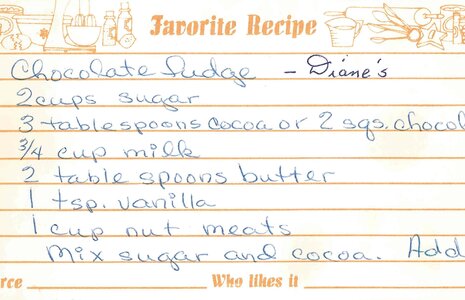 Favorite Recipe
Chocolate Fudge - Diane's
2 cups sugar
3 tablespoons cocoa or 2 sqs. chocol
3/4 cup milk
2 table spoons butter
1 tsp. vanilla
1 cup nut meats
Mix sugar and cocoa. Add
rce Who likes it